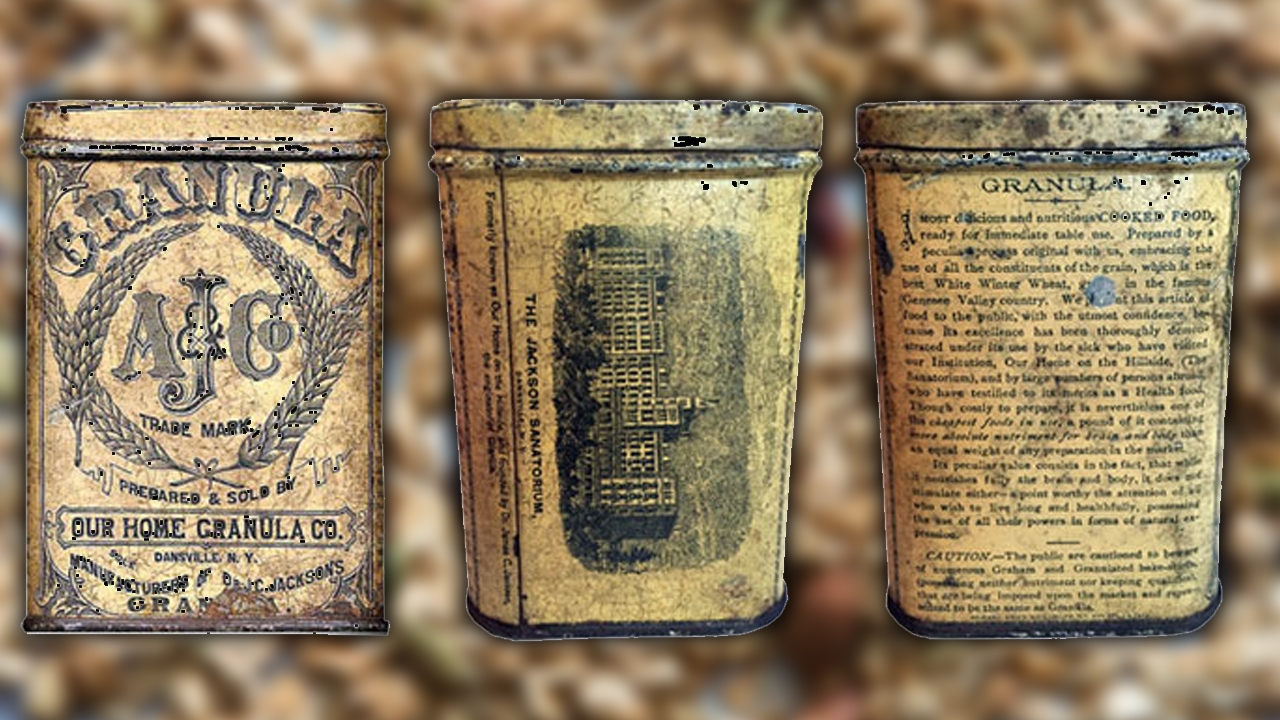 GRANULA
AJ&Co
TRADE MARK.
PREPARED & SOLD BY
OUR HOME GRANULA CO.
DANSVILLE, N. Y.
MANUFACTURERS OF DR. J.C. JACKSON'S
GRAN
Formerly known as Our Home on the Hillside,
THE JACKSON SANATORIUM,
GRANULA.
A most delicious and nutritious COOKED FOOD,
ready for immediate table use. Prepared by a
peculiar process original with us, embracing the
use of all the constituents of the grain, which is the
best White Winter Wheat, in the famous
Genesee Valley country. We this article of
food to the public, with the utmost confidence, be-
cause its excellence has been thoroughly demon-
strated under its use by the sick who have visited
our Institution, Our Home on the Hillside, (The
Sanatorium), and by large numbers of persons
who have testified to its merits as a Health food.
Though costly to prepare, it is nevertheless one of
the cheapest foods in use, a pound of it
more absolute nutriment for brain and body than
an equal weight of any preparation in the market.
Its peculiar value consists in the fact, that
it nourishes fully the brain and body, it does
stimulate either—a point worthy the attention of
who wish to live long and healthfully,
the use of all their powers in forms of natural ex-
pression.
CAUTION.—The public are cautioned to beware
of numerous Graham and Granulated
(possessing neither nutriment nor keeping
that are being imposed upon the market and
to be the same as Granula.